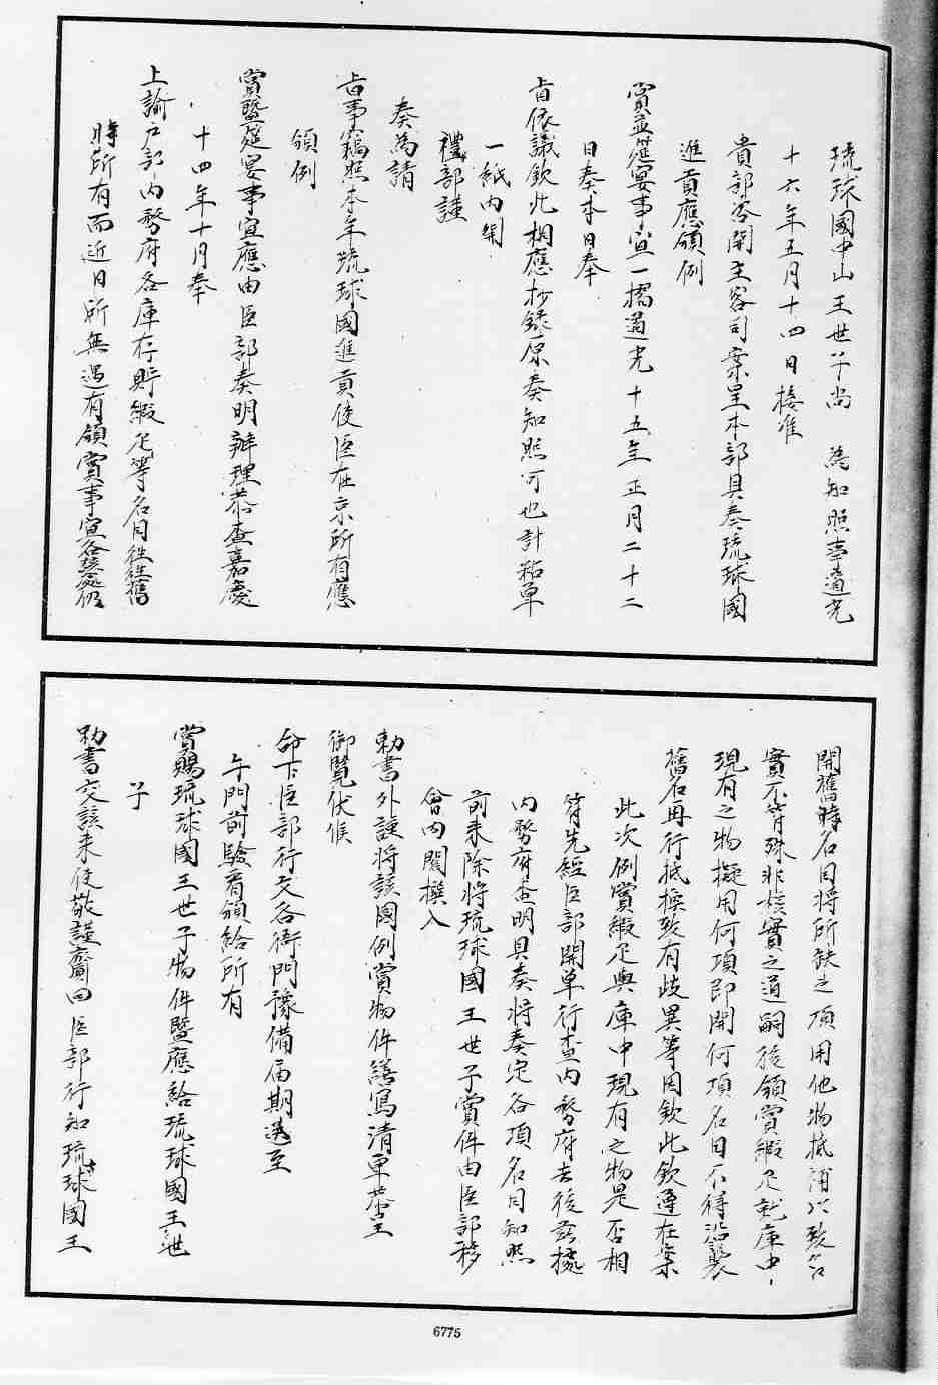 琉球國中山王世子尚　為知照事道光
十六年五月十四日接准
貴部咨開主客司案呈本部具奏琉球國
進貢應領例
賞並筵宴事宜一摺道光十五年正月二十二
日奏本日奉
旨依議欽此相應抄錄原奏知照可也計粘單
一紙內開
禮部謹
奏為請
旨事竊照本年琉球國進貢使臣在京所有應
領例
賞暨筵宴事宜應由臣部奏明辦理恭查嘉慶
十四年十月奉
上諭戶部內務府各庫存貯緞疋等名目往往舊
時所有而近日所無遇有領賞事宜各該處仍
開舊時名目將所缺之項用他物抵補以致名
實不符殊非核實之道嗣後領賞緞疋就庫中
現有之物擬用何項即開何項名目不得沿襲
舊名再行抵換致有歧異等因欽此欽遵在案
此次例賞緞疋與庫中現有之物是否相
符先經臣部開單行查內務府去後茲據
內務府查明具奏將奏定各項名目知照
前來除將琉球國王世子賞件由臣部移
會內閣撰入
勅書外謹將該國例賞物件繕寫清單恭呈
御覽伏候
命下臣部行文各衙門豫備屆期送至
午門前驗看頒給所有
賞賜琉球國王世子物件暨應給琉球國王世
子
勅書交該來使敬謹齎回臣部行知琉球國王
6775